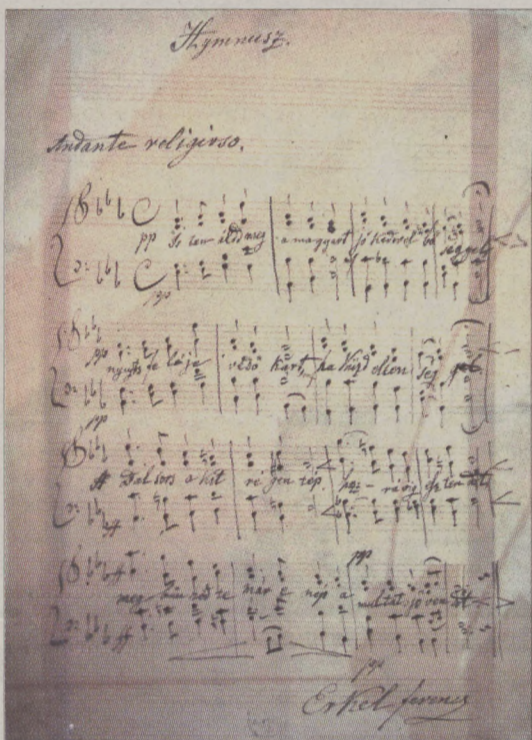 Hymnusz.
Andante religioso.
pp Is ten áldd meg a magyart jó kedvvel bő séggel
pp
pp nyujts fe léje védő kart, ha küzd ellen ség
pp
ff Bal sors a kit régen tép,
ff
ff meg bűn hőd te már e nép a multat jöven dőt
ff
pp
pp
Erkel Ferencz